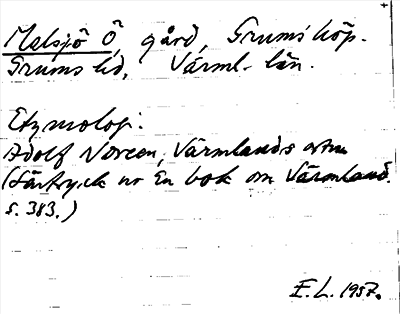 Malsjö Ö, gård, Grums köp.
Grums hd, Värml. län.
Etymologi:
Adolf Noreen, Värmlands ortn
(Särtryck ur En bok om Värmland.
s. 383.)
E.L. 1957.